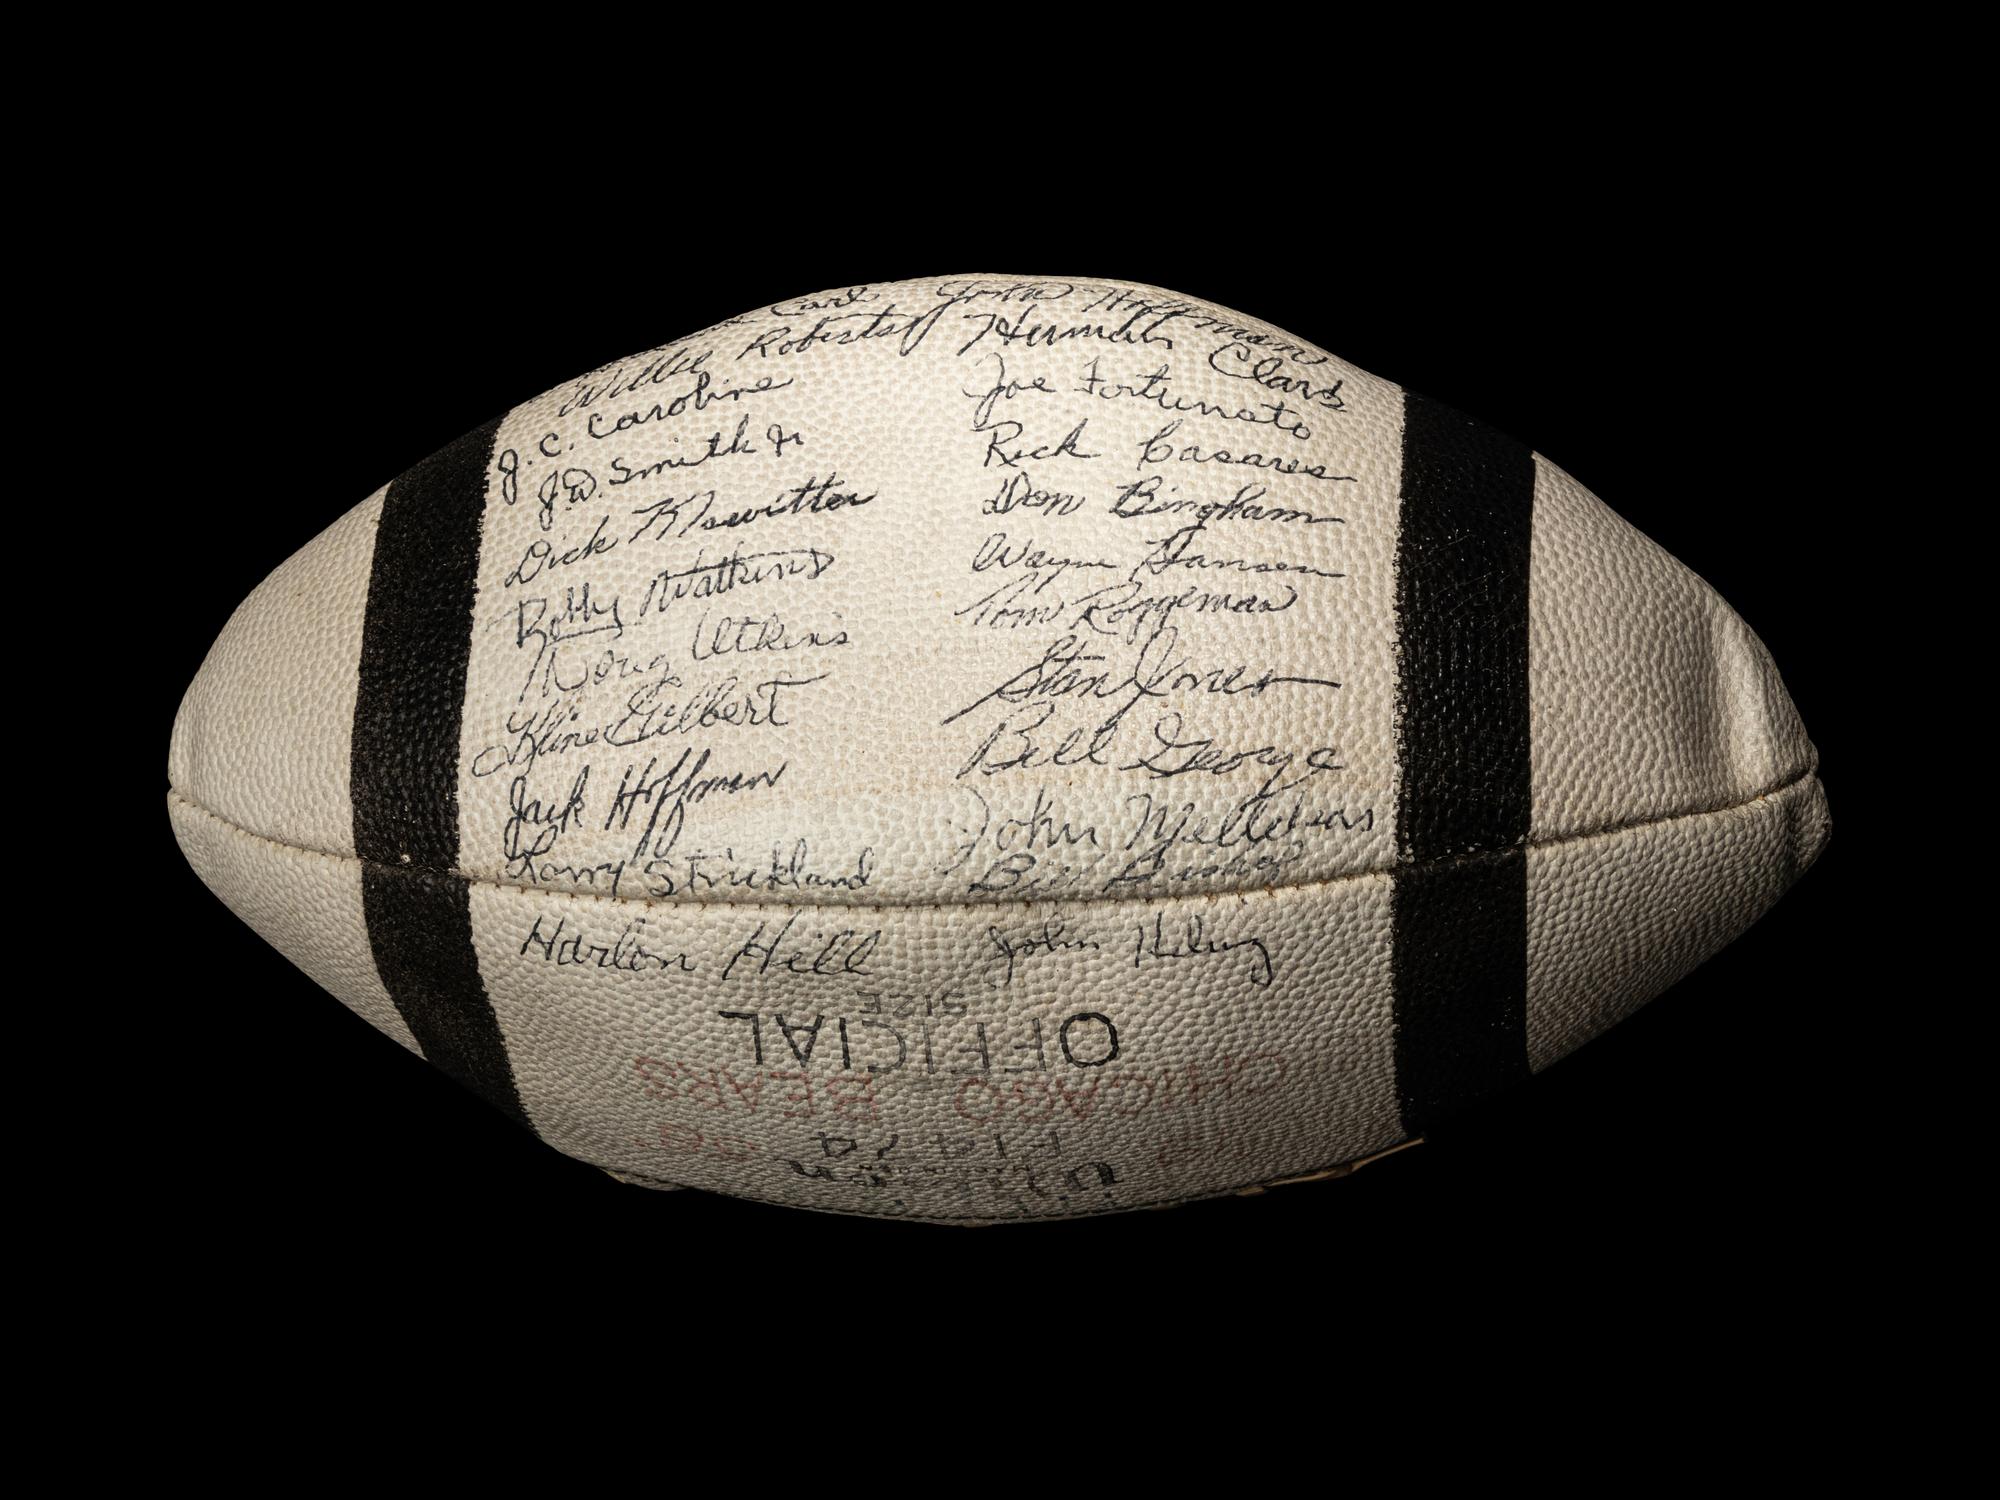 Carl
Willie Roberts
J. C. Caroline
J.W. Smith Jr
Dick Klawitter
Bobby Watkins
Doug Atkins
Kline Gilbert
Jack Hoffman
Larry Strickland
Harlon Hill
John Hoffman
Herman Clark
Joe Fortunato
Rick Casares
Don Bingham
Wayne Hansen
Tom Roggeman
Stan Jones
Bill George
John Mellekas
Bill Bishop
John Helwig
Wilson
CHICAGO BEARS
OFFICIAL
SIZE